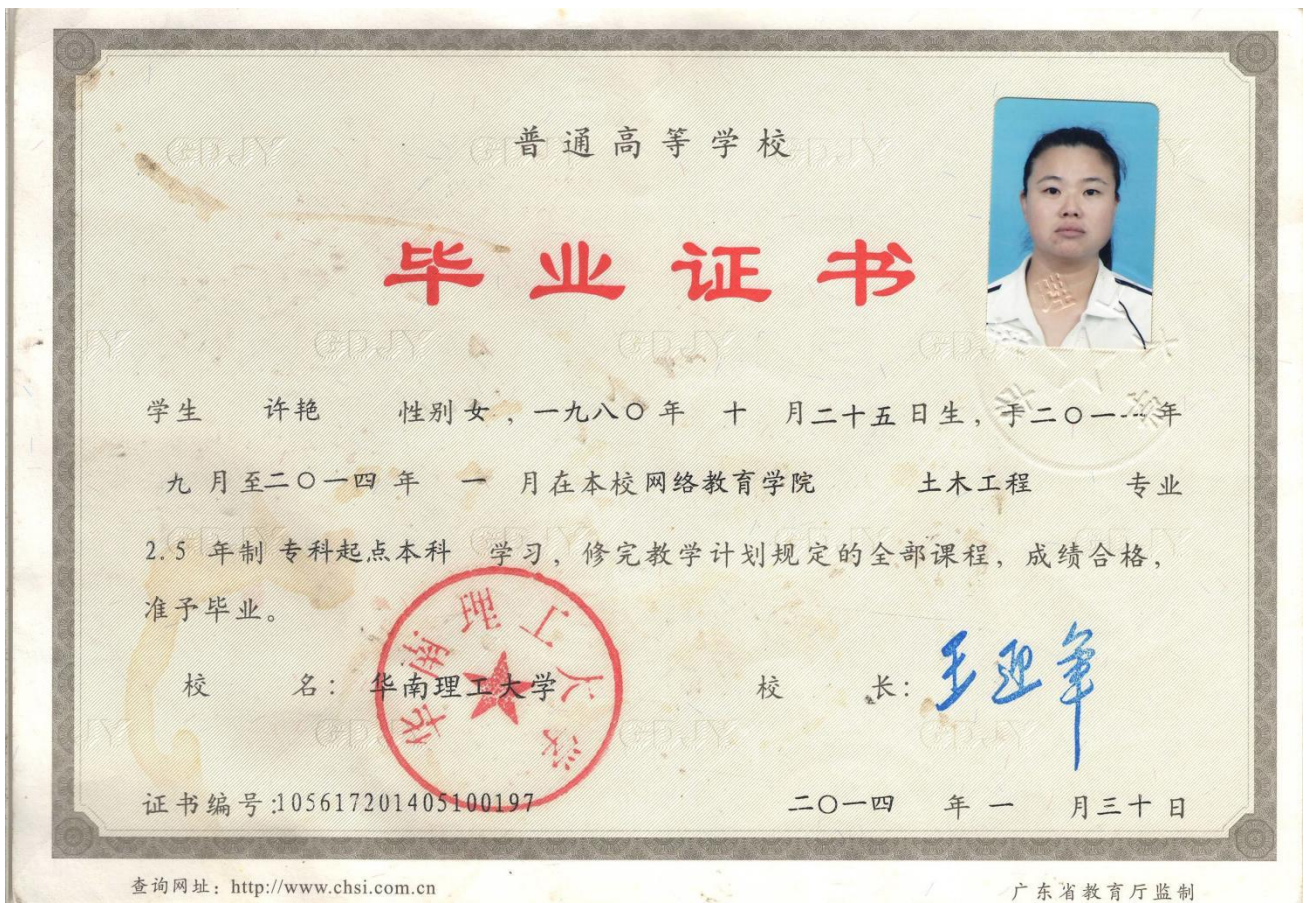 普通高等学校
毕业证书
学生 许艳 性别女，一九八〇年 十 月二十五日生，于二〇一一年
九 月至二〇一四 年 一 月在本校网络教育学院 土木工程 专业
2.5 年制 专科起点本科 学习，修完教学计划规定的全部课程，成绩合格，
准予毕业。
校 名：华南理工大学 校 长：王迎军
华南理工大学
证书编号:105617201405100197 二〇一四 年 一 月三十日
查询网址：http://www.chsi.com.cn 广东省教育厅监制
GDJY